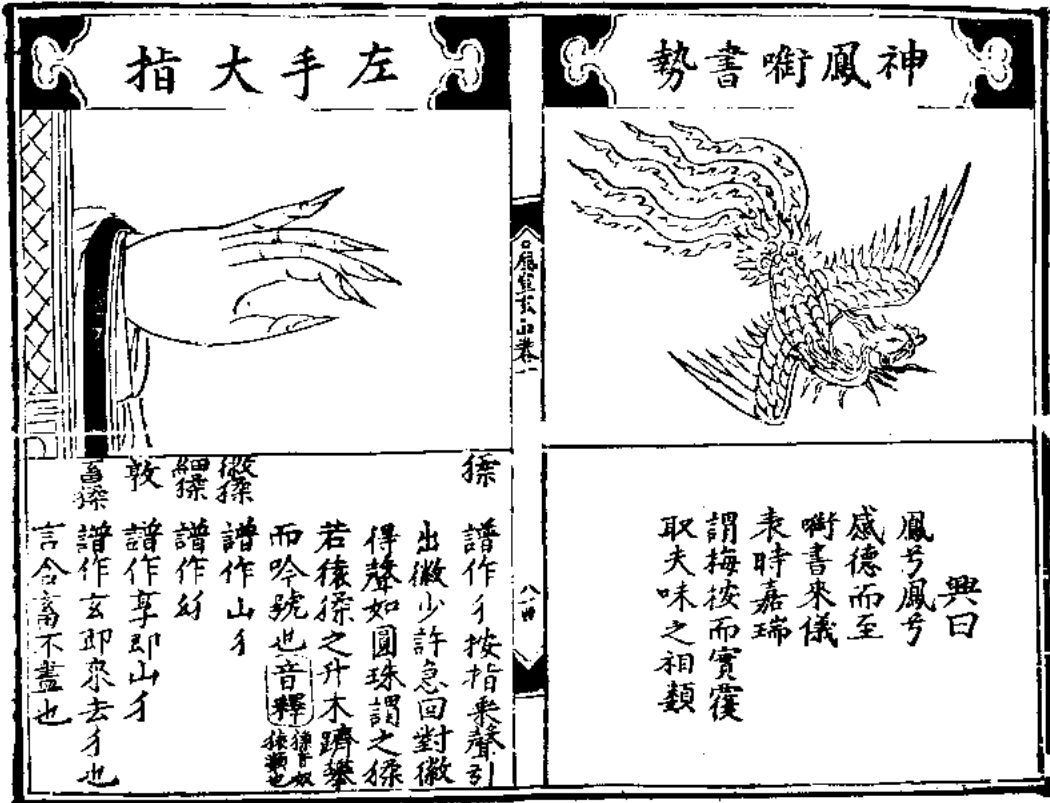 神鳳啣書勢
興曰
鳳兮鳳兮
感德而至
啣書來儀
表時嘉瑞
謂梅按而實覆
取夫味之相類
左手大指
猱 譜作犭按指乗聲引
出徽少許急回對徽
得聲如圓珠謂之猱
若猿猱之升木躋攀
而吟號也音釋 猱音奴 猿類也
㣲猱 譜作山犭
細猱 譜作
敦 譜作享即山犭
畜猱 譜作玄即來去犭也
言含畜不盡也